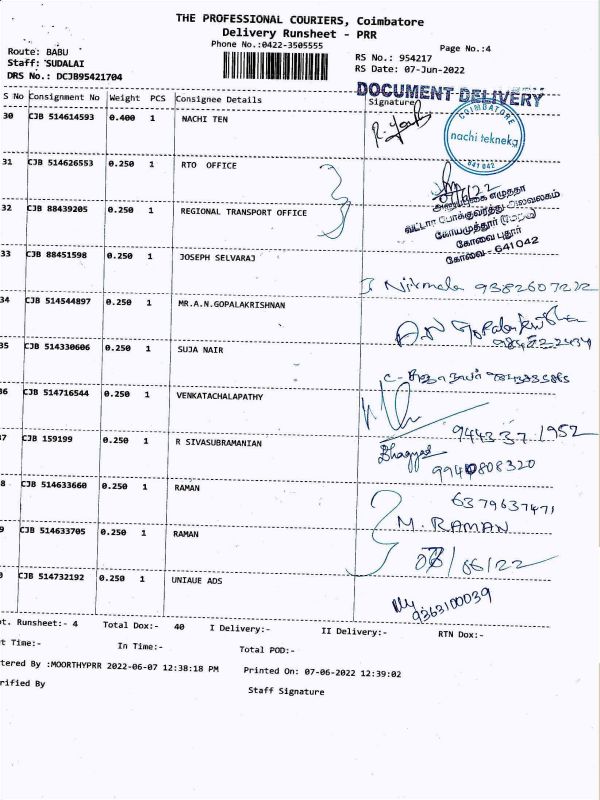 THE PROFESSIONAL COURIERS, Coimbatore
Delivery Runsheet - PRR
Phone No.:0422-3505555
Page No.:4
Route: BABU
Staff: SUDALAI
DRS No.: DCJB95421704
RS No.: 954217
RS Date: 07-Jun-2022
DOCUMENT DELIVERY
S No Consignment No Weight PCS Consignee Details Signature
30 CJB 514614593 0.400 1 NACHI TEN
COIMBATORE
nachi tekneka
641 042
31 CJB 514626553 0.250 1 RTO OFFICE
எழுத்தர்
வட்டார போக்குவரத்து அலுவலகம்
32 CJB 88439205 0.250 1 REGIONAL TRANSPORT OFFICE
கோயமுத்தூர்
கோவை புதூர்
கோவை - 641042
33 CJB 88451598 0.250 1 JOSEPH SELVARAJ
J Nirmala
34 CJB 514544897 0.250 1 MR.A.N.GOPALAKRISHNAN
35 CJB 514330606 0.250 1 SUJA NAIR
36 CJB 514716544 0.250 1 VENKATACHALAPATHY
944337 1952
37 CJB 159199 0.250 1 R SIVASUBRAMANIAN
9940808320
8 CJB 514633660 0.250 1 RAMAN
6379637471
M. RAMAN
9 CJB 514633705 0.250 1 RAMAN
/06/22
CJB 514732192 0.250 1 UNIAUE ADS
9363100039
ot. Runsheet:- 4 Total Dox:- 40 I Delivery:- II Delivery:- RTN Dox:-
t Time:- In Time:- Total POD:-
tered By :MOORTHYPRR 2022-06-07 12:38:18 PM Printed On: 07-06-2022 12:39:02
rified By Staff Signature